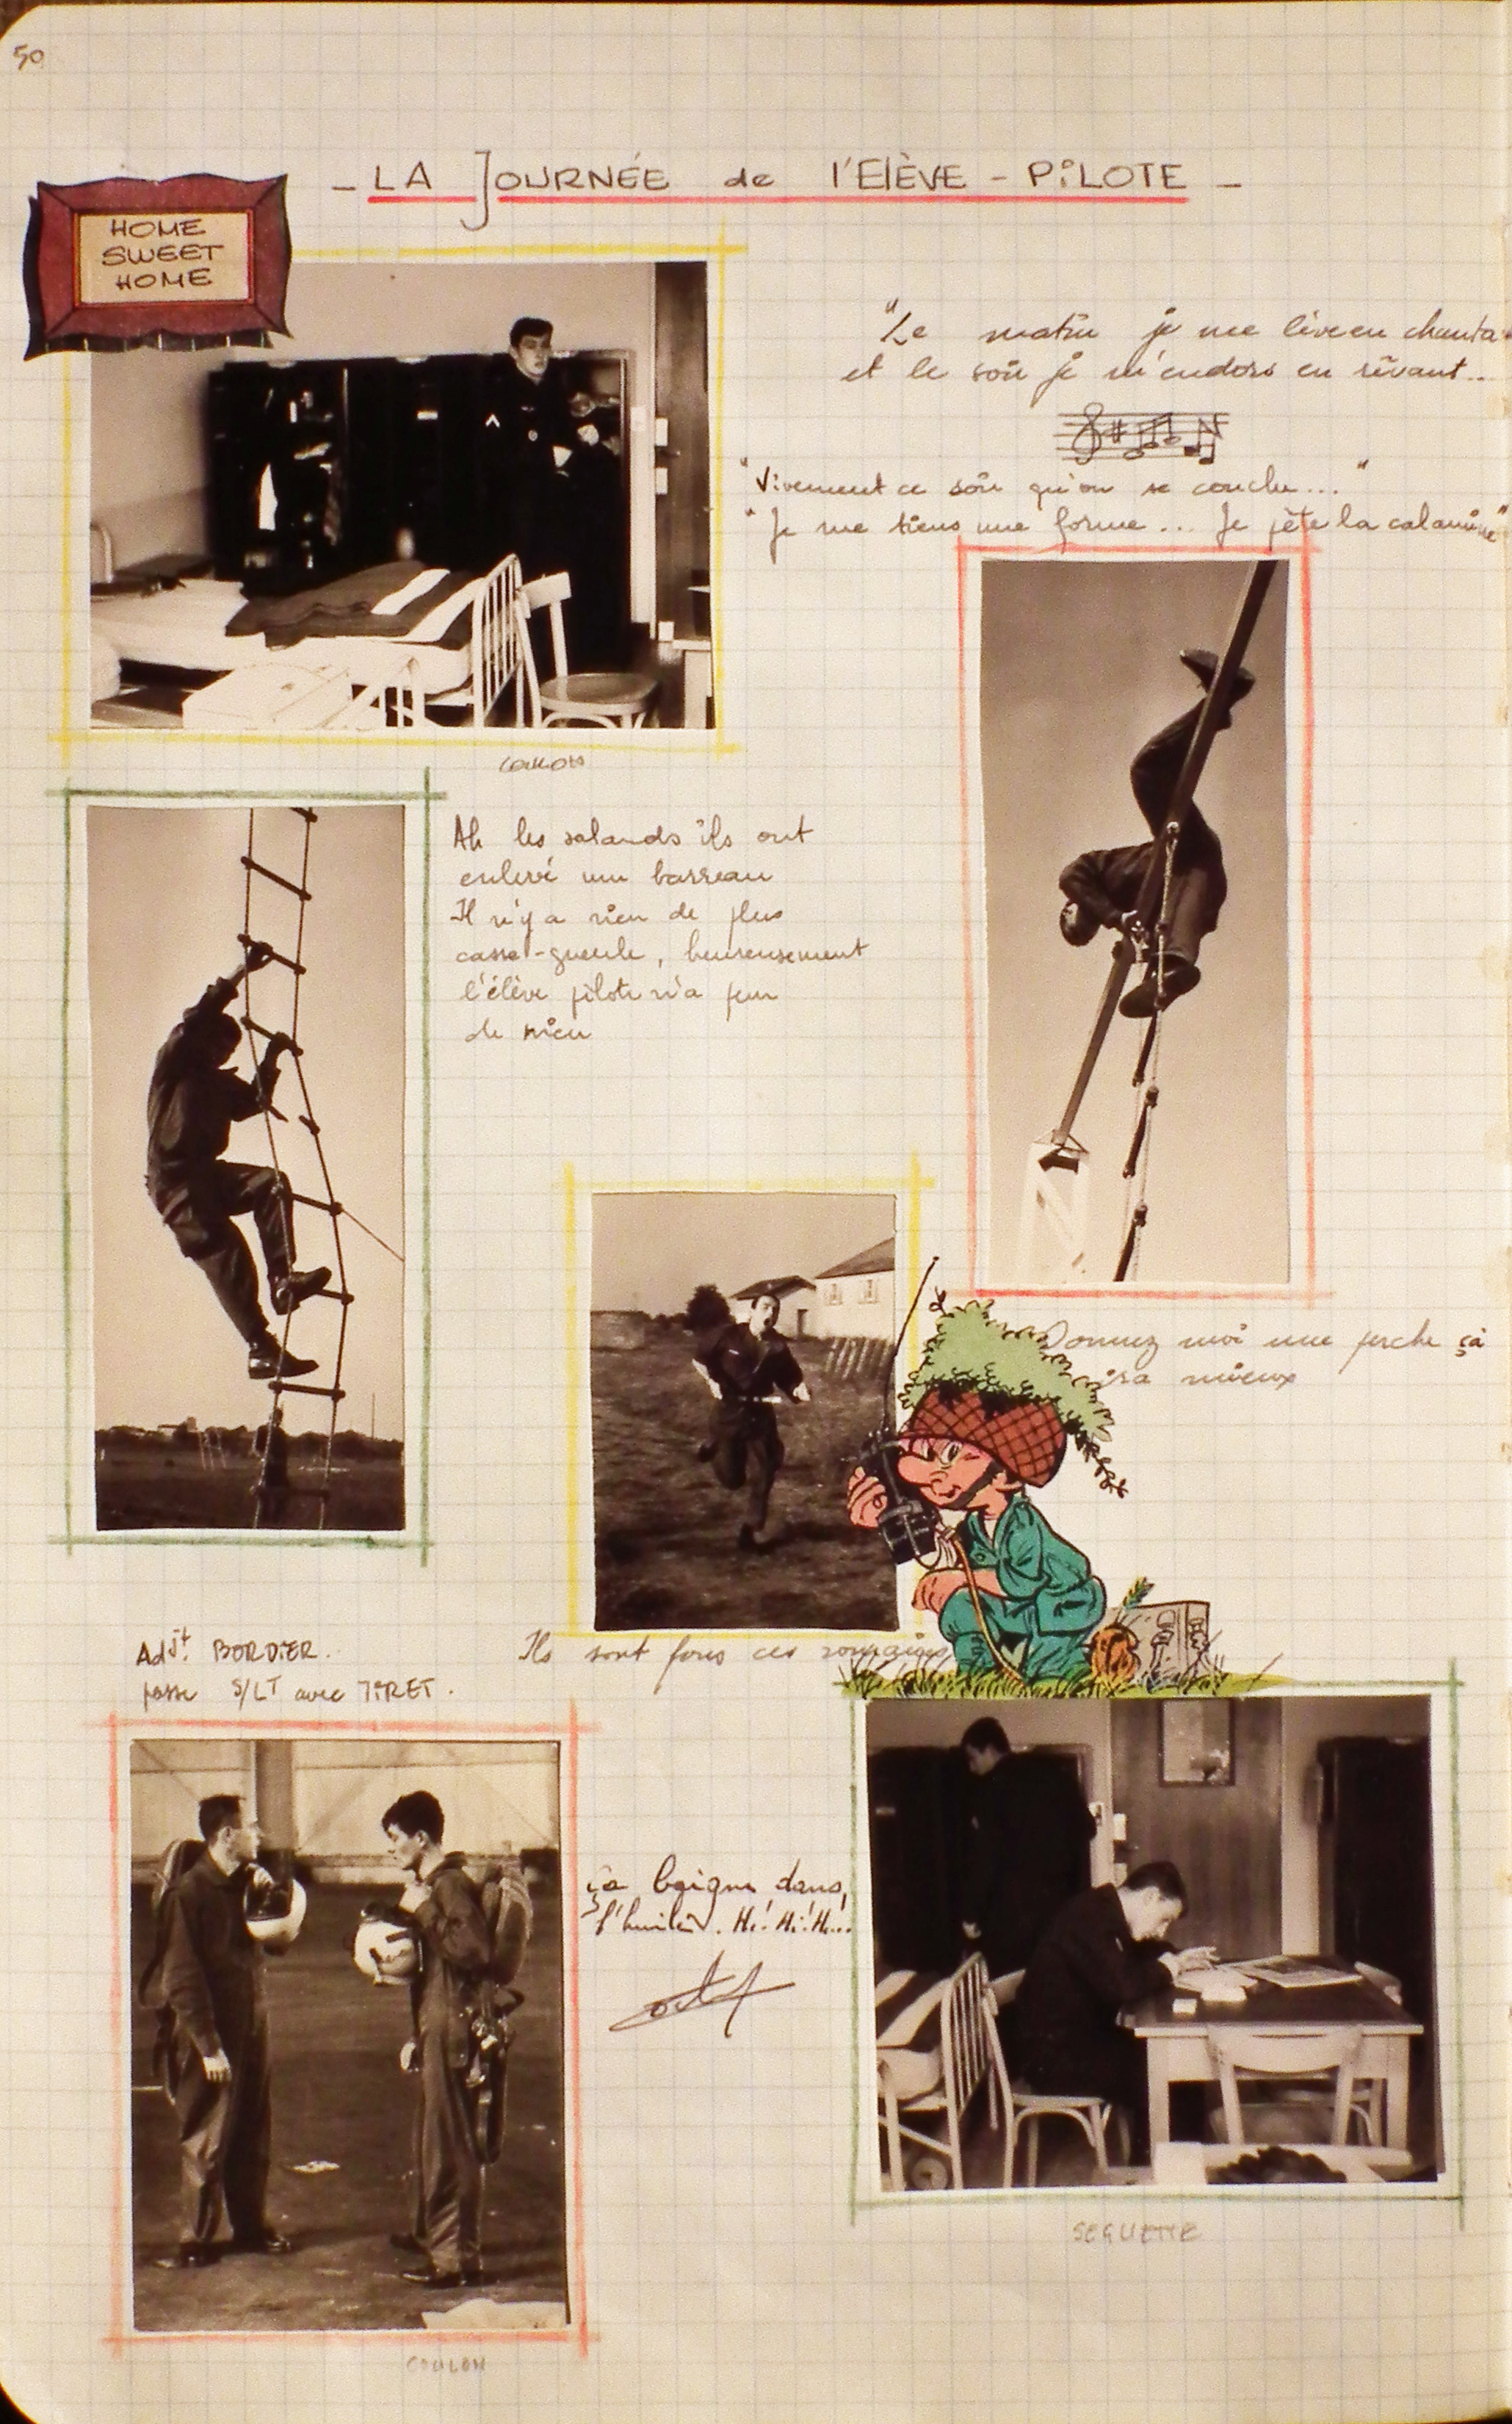 50
- LA JOURNÉE de l'ElÈVE - PiLOTE -
HOME
SWEET
HOME
"Le matin je me lève en chanta
et le soir je m'endors en rêvant...
"Vivement ce soir qu'on se couche..."
"Je me tiens une forme... Je pète la calamine"
Ah les salauds ils ont
enlevé un barreau
Il n'y a rien de plus
casse-gueule, heureusement
l'élève pilote n'a peur
de rien
Donnez moi une perche çà
ira mieux
Adjt. BORDIER.
passe S/LT avec TiRET.
Ils sont fous ces romains
ça baigne dans
l'huile. Hi! Hi! Hi!...
SEGUETTE
COULON